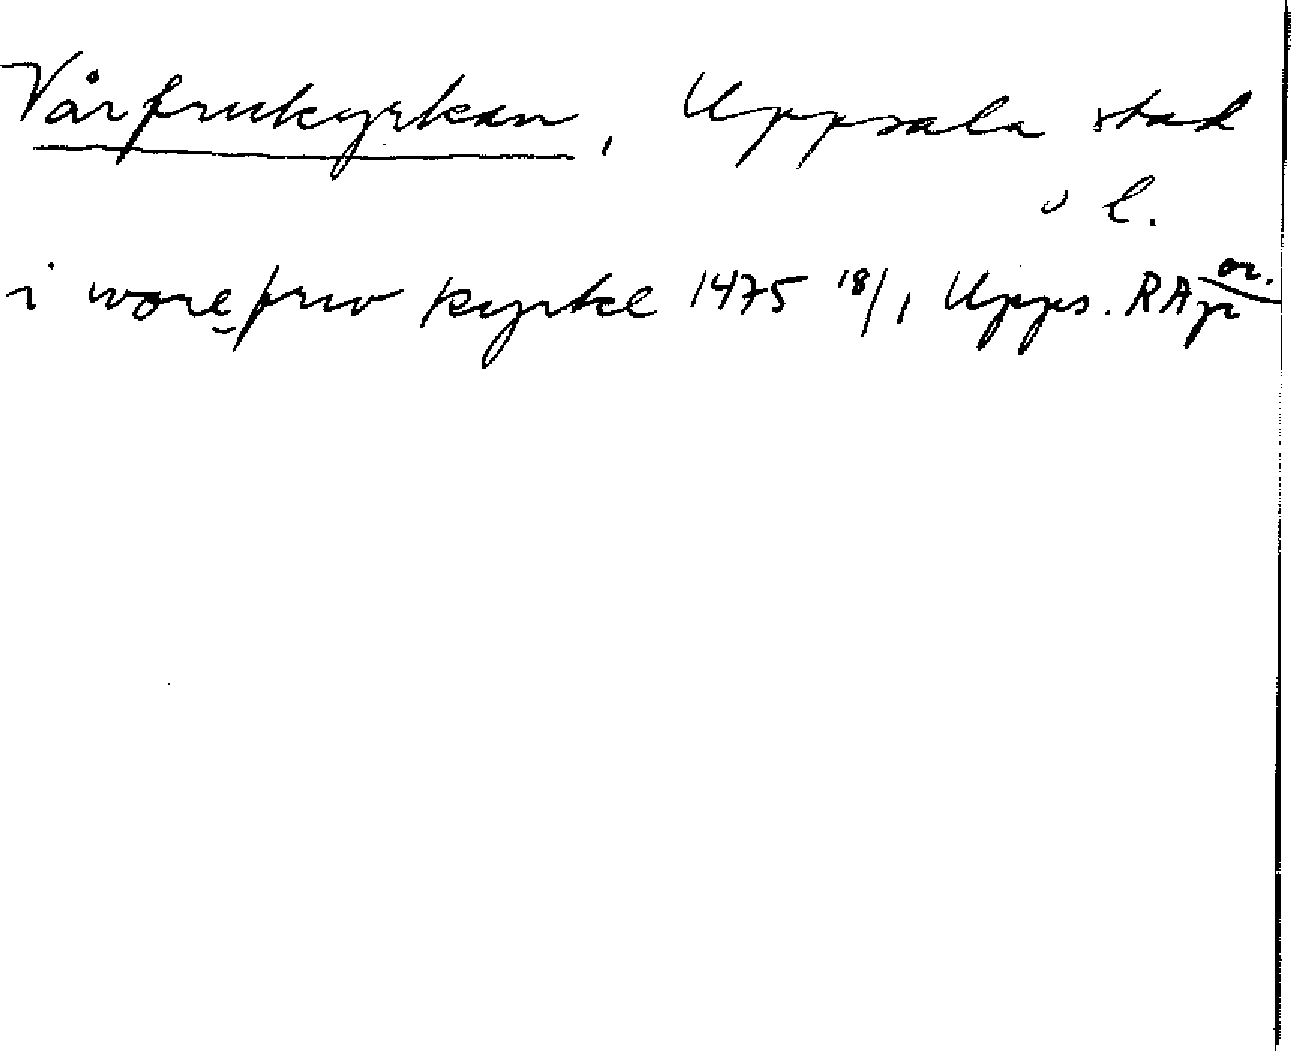 Vårfrukyrkan, Uppsala stad
o l.
i warefrw kyrke 1475 18/1 Upps. RAp or.